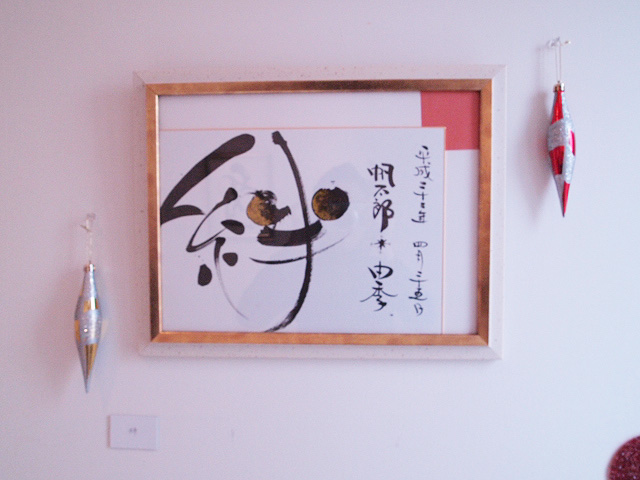 平成二十二年 四月二十五日
帆太郎 * 由季
絆